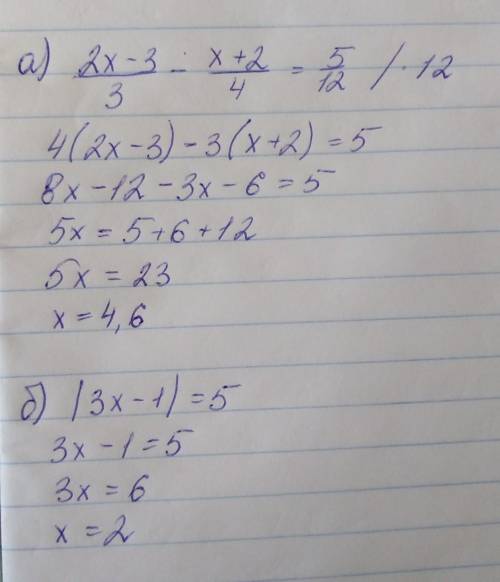 а) (2x-3)/3 - (x+2)/4 = 5/12 / · 12
4(2x-3)-3(x+2)=5
8x-12-3x-6=5
5x=5+6+12
5x=23
x=4,6
б) |3x-1|=5
3x-1=5
3x=6
x=2